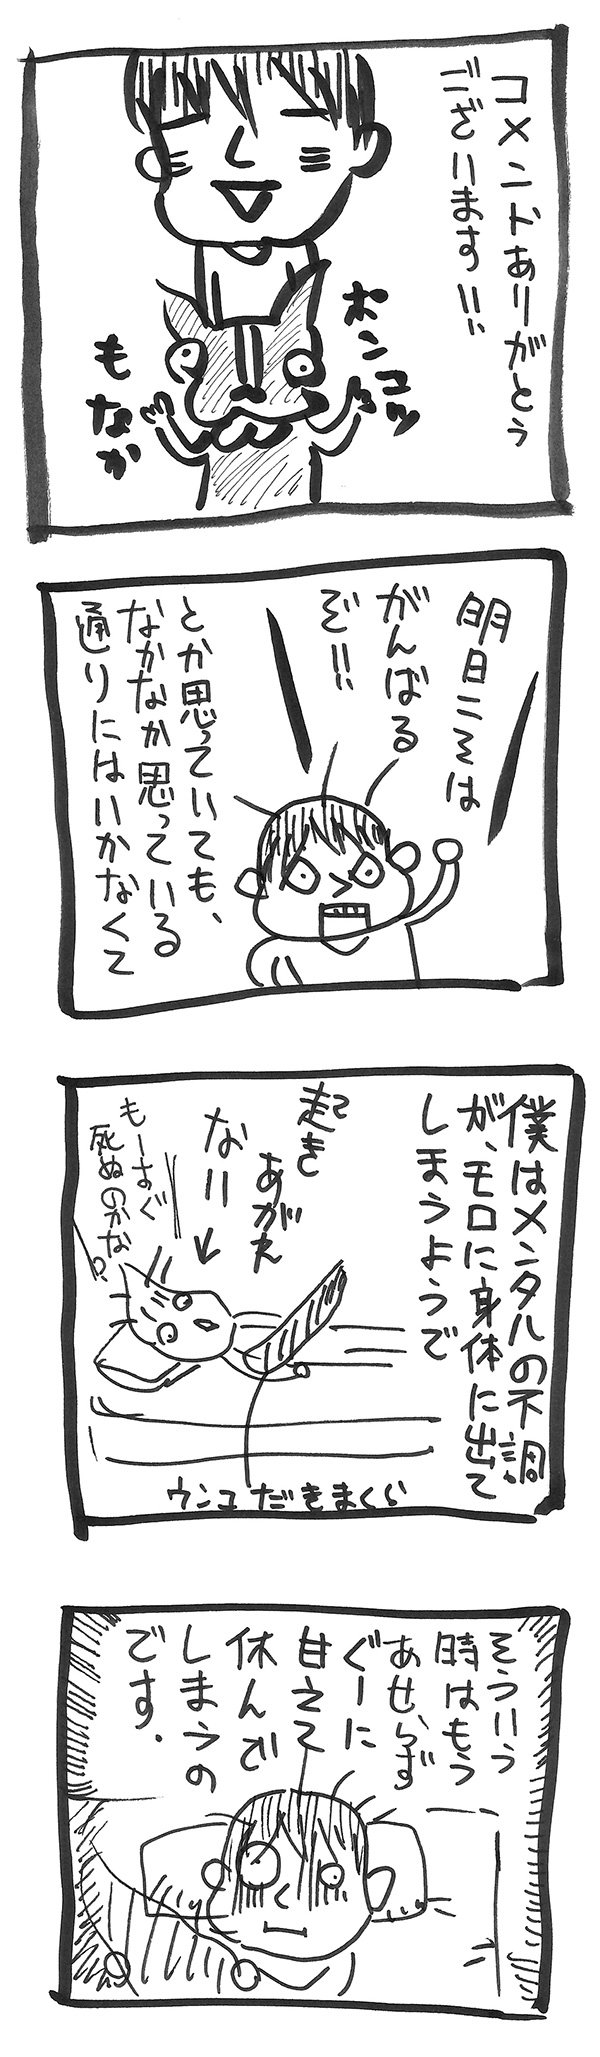 コメントありがとう
ございます!!
ポンコツ
もなか
明日こそは
がんばる
ぞ!!
とか思っていても、
なかなか思っている
通りにはいかなくて
僕はメンタルの不調
が、モロに身体に出て
しまうようで
起き
あがれ
ない
もーすぐ
死ぬのかな?
ウンコだきまくら
そういう
時はもう
あせらず
ぐーに
甘えて
休んで
しまうの
です.